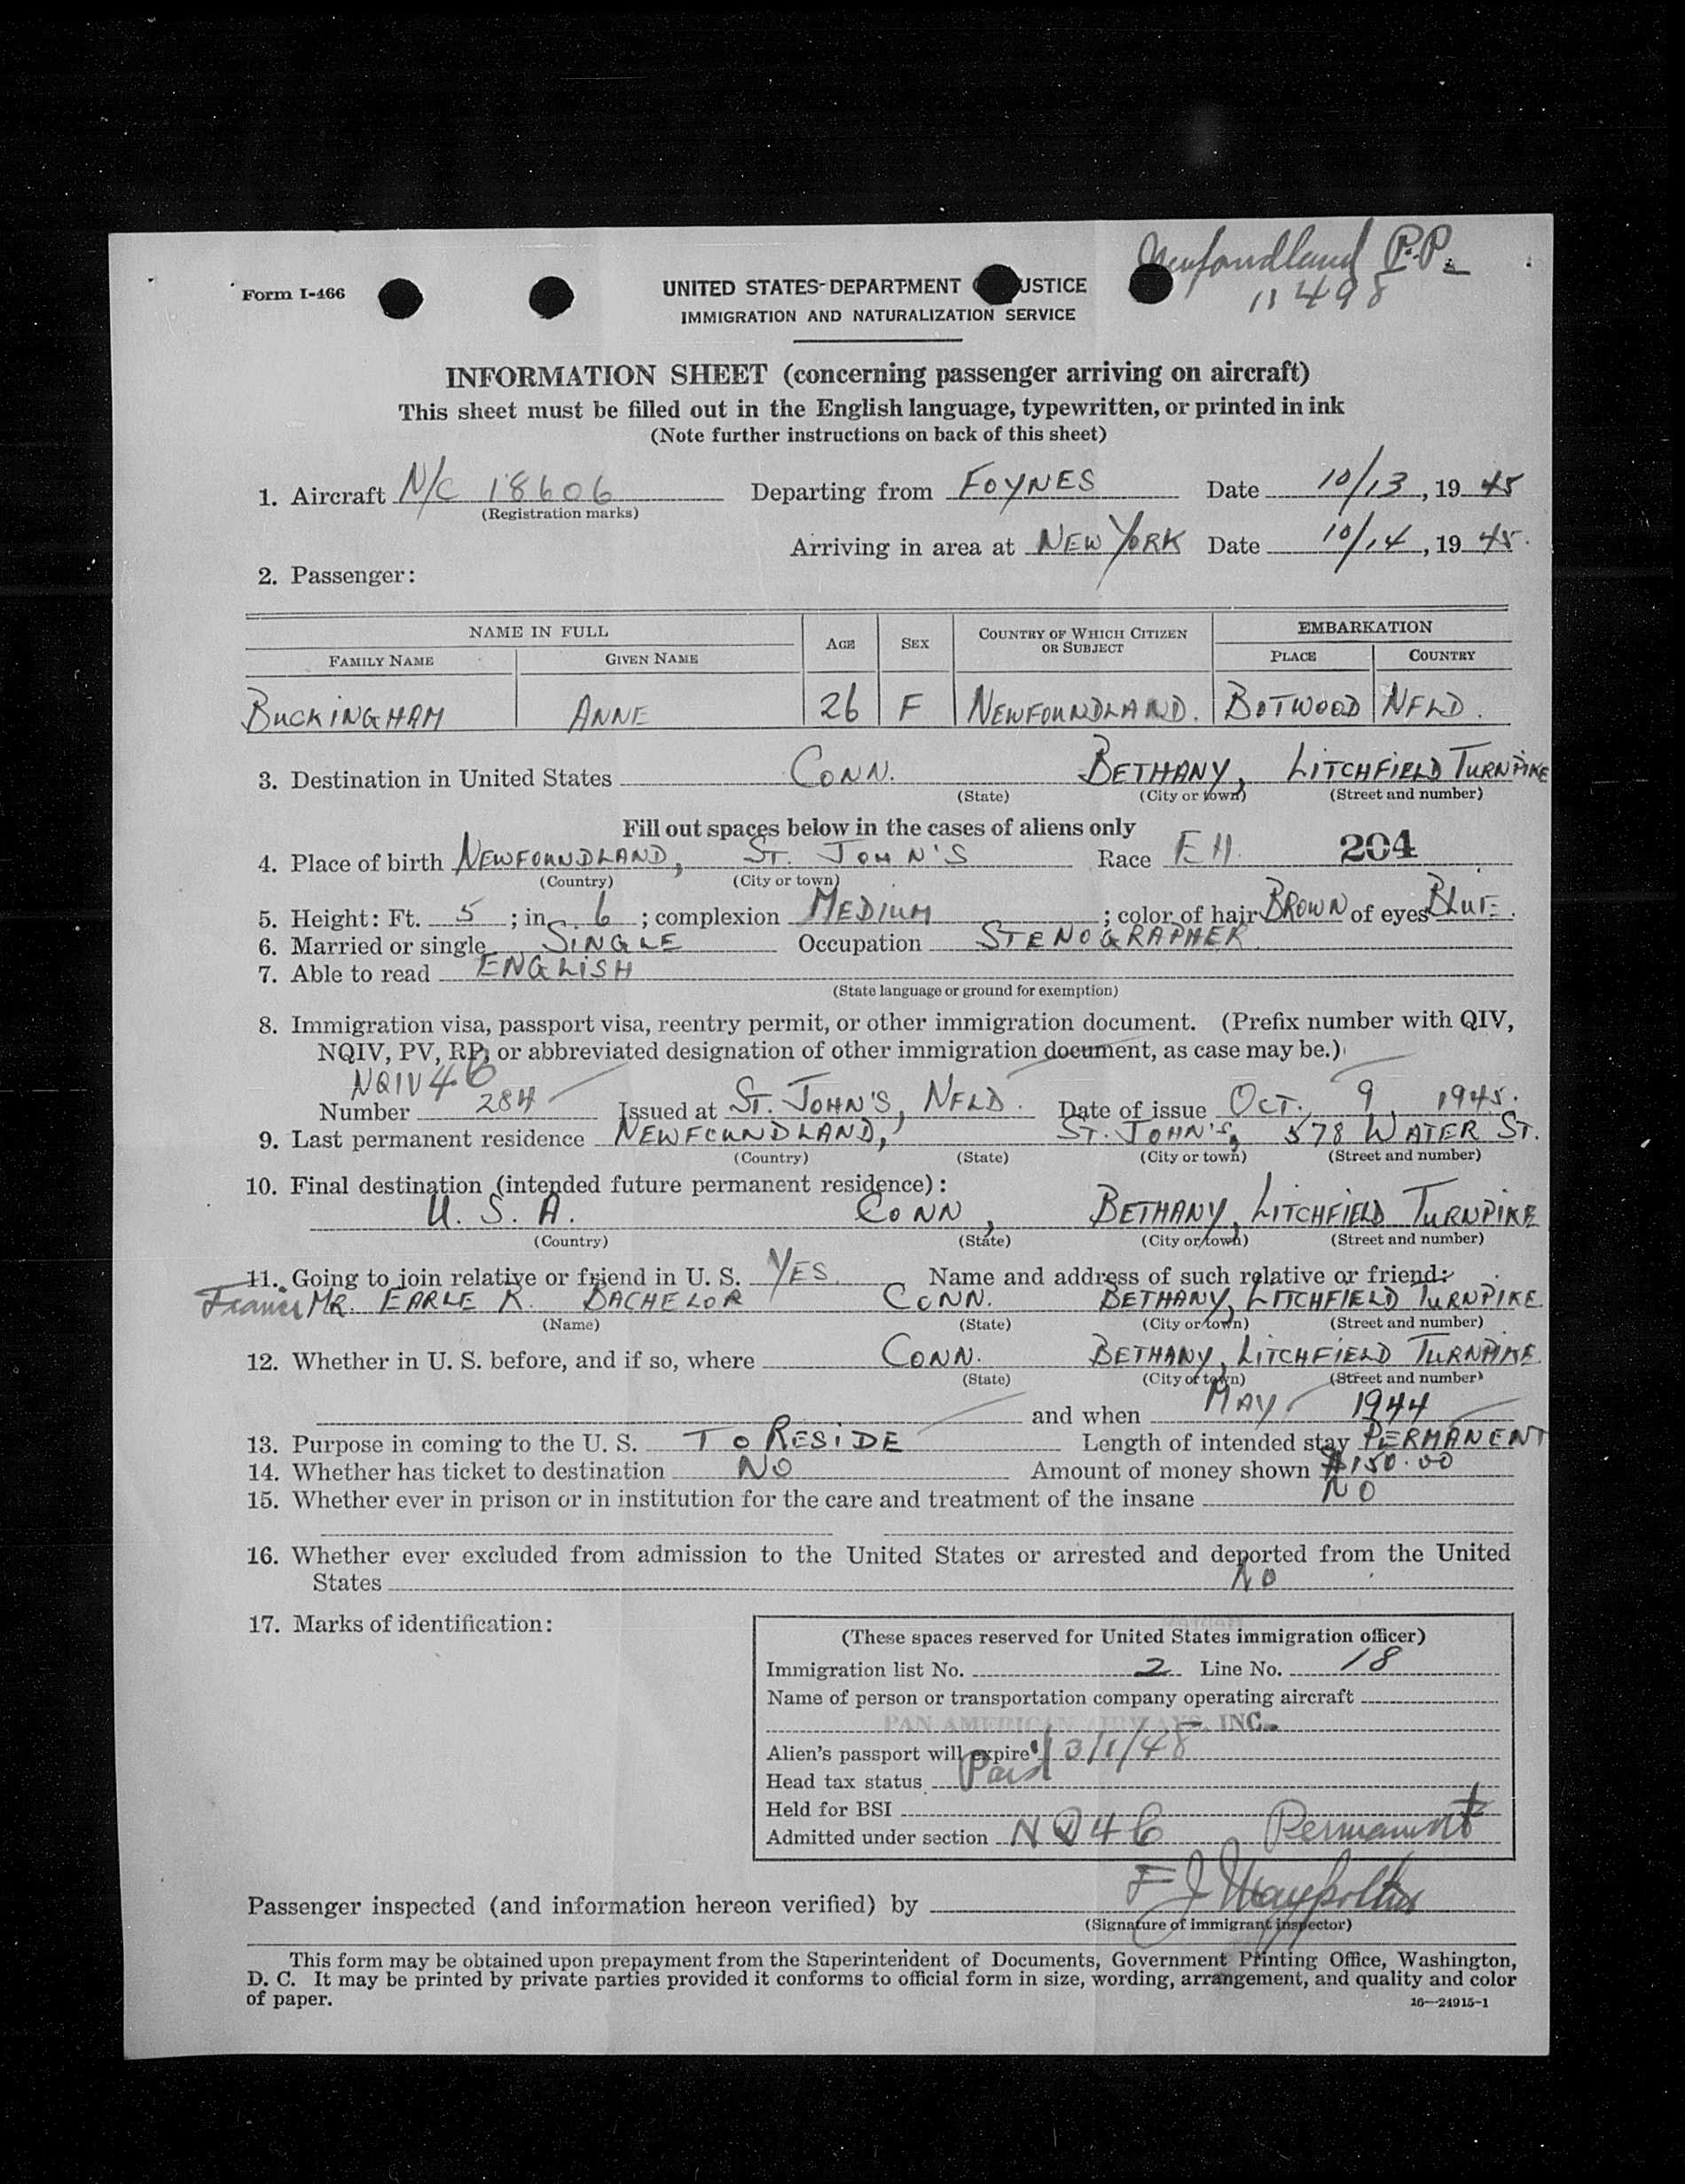 Newfoundland P.P.
Form I-466
UNITED STATES DEPARTMENT JUSTICE
11498
IMMIGRATION AND NATURALIZATION SERVICE
INFORMATION SHEET (concerning passenger arriving on aircraft)
This sheet must be filled out in the English language, typewritten, or printed in ink
(Note further instructions on back of this sheet)
1. Aircraft N/C 18606 Departing from FOYNES Date 10/13, 1945
(Registration marks)
Arriving in area at NEW YORK Date 10/14, 1945.
2. Passenger:
NAME IN FULL AGE SEX COUNTRY OF WHICH CITIZEN OR SUBJECT EMBARKATION
FAMILY NAME GIVEN NAME PLACE COUNTRY
BUCKINGHAM ANNE 26 F NEWFOUNDLAND. BOTWOOD NFLD.
3. Destination in United States CONN. BETHANY, LITCHFIELD TURNPIKE
(State) (City or town) (Street and number)
Fill out spaces below in the cases of aliens only
4. Place of birth NEWFOUNDLAND, ST. JOHN'S Race 204
(Country) (City or town)
5. Height: Ft. 5; in. 6; complexion MEDIUM; color of hair BROWN of eyes BLUE.
6. Married or single SINGLE Occupation STENOGRAPHER.
7. Able to read ENGLISH
(State language or ground for exemption)
8. Immigration visa, passport visa, reentry permit, or other immigration document. (Prefix number with QIV,
NQIV, PV, RP, or abbreviated designation of other immigration document, as case may be.)
NQIV 4
Number 284 Issued at ST. JOHN'S, NFLD. Date of issue OCT. 9, 1945.
9. Last permanent residence NEWFOUNDLAND, ST. JOHN'S, 578 WATER ST.
(Country) (State) (City or town) (Street and number)
10. Final destination (intended future permanent residence):
U. S. A. CONN, BETHANY, LITCHFIELD TURNPIKE
(Country) (State) (City or town) (Street and number)
11. Going to join relative or friend in U. S. YES. Name and address of such relative or friend:
MR. EARLE R. BACHELOR CONN. BETHANY, LITCHFIELD TURNPIKE
(Name) (State) (City or town) (Street and number)
12. Whether in U. S. before, and if so, where CONN. BETHANY, LITCHFIELD TURNPIKE
(State) (City of town) (Street and number)
and when MAY 1944
13. Purpose in coming to the U. S. TO RESIDE Length of intended stay PERMANENT
14. Whether has ticket to destination NO Amount of money shown $150.00
15. Whether ever in prison or in institution for the care and treatment of the insane NO
16. Whether ever excluded from admission to the United States or arrested and deported from the United
States NO
17. Marks of identification:
(These spaces reserved for United States immigration officer)
Immigration list No. 2 Line No. 18
Name of person or transportation company operating aircraft
PAN AMERICAN AIRWAYS, INC.
Alien's passport will expire 3/1/48
Head tax status Paid
Held for BSI
Admitted under section NQ4C Permanent
Passenger inspected (and information hereon verified) by
(Signature of immigrant inspector)
This form may be obtained upon prepayment from the Superintendent of Documents, Government Printing Office, Washington,
D. C. It may be printed by private parties provided it conforms to official form in size, wording, arrangement, and quality and color
of paper.
16—24915-1